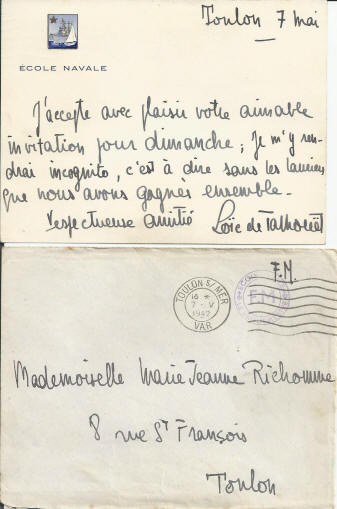 Toulon 7 mai
ÉCOLE NAVALE
J'accepte avec plaisir votre aimable
invitation pour dimanche ; Je m'y ren-
drai incognito, c'est à dire sans les lauriers
que nous avons gagnés ensemble.
respectueuse amitié Loïc de Talhouët
F.M.
TOULON S/MER
16 *
7 - V
1942
VAR
Mademoiselle Marie Jeanne Richomme
8 rue St François
Toulon